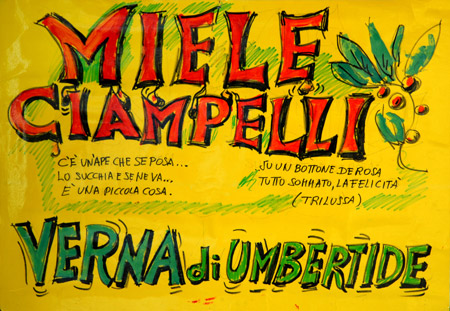 MIELE
CIAMPELLI
C'È UN'APE CHE SE POSA...
LO SUCCHIA E SE NE VA...
È UNA PICCOLA COSA.
...SU UN BOTTONE DE ROSA
TUTTO SOMMATO, LA FELICITÀ
(TRILUSSA)
VERNA di UMBERTIDE